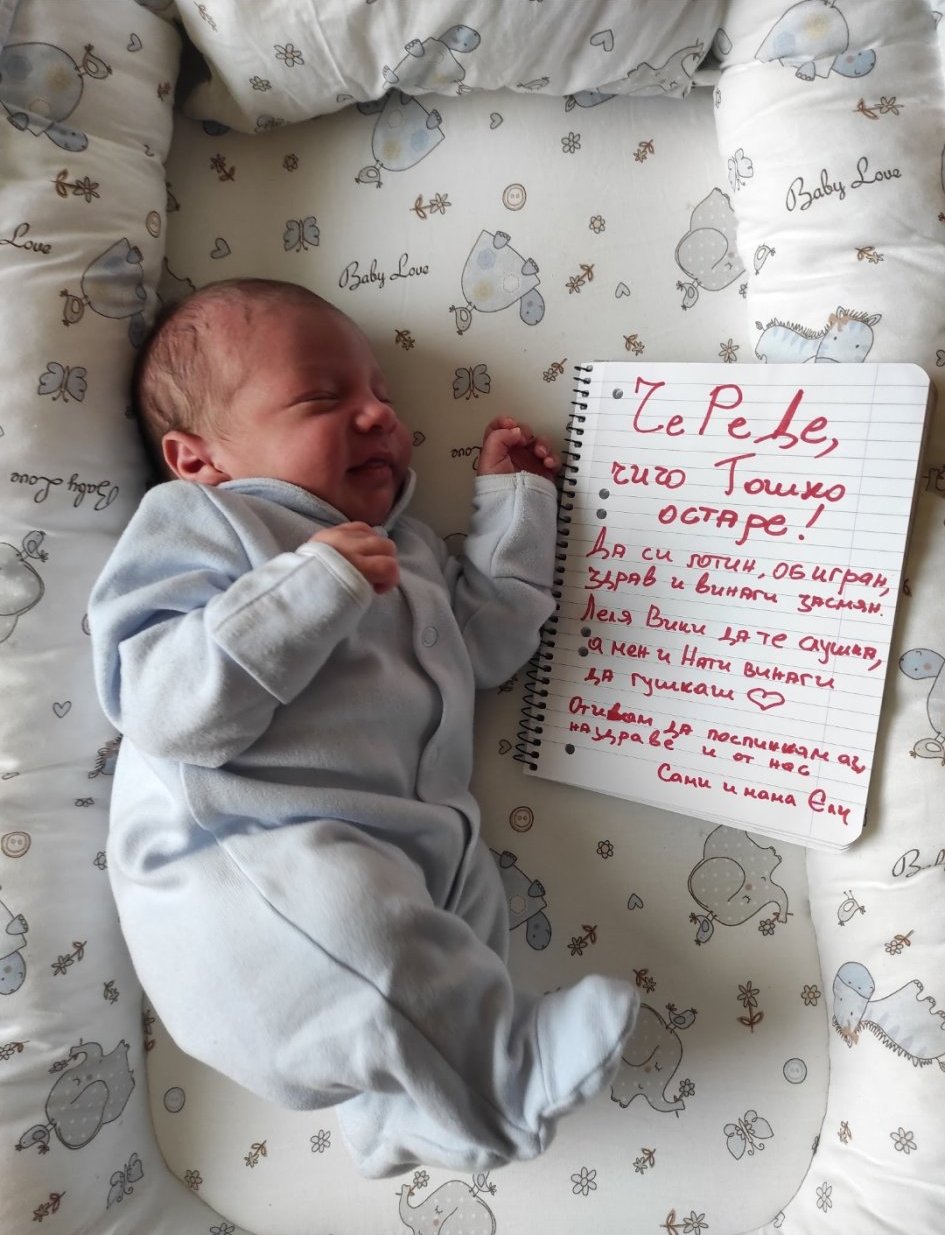 Baby Love
Love
Baby Love
Baby Love
Love
Че Ре Де,
чичо Тошко
остаре!
Да си готин, обигран,
здрав и винаги засмян.
Леля Вики да те слушка,
а мен и Нати винаги
да гушкаш ♡
Отивам да поспинкам аз,
наздраве и от нас
Сами и мама Ели